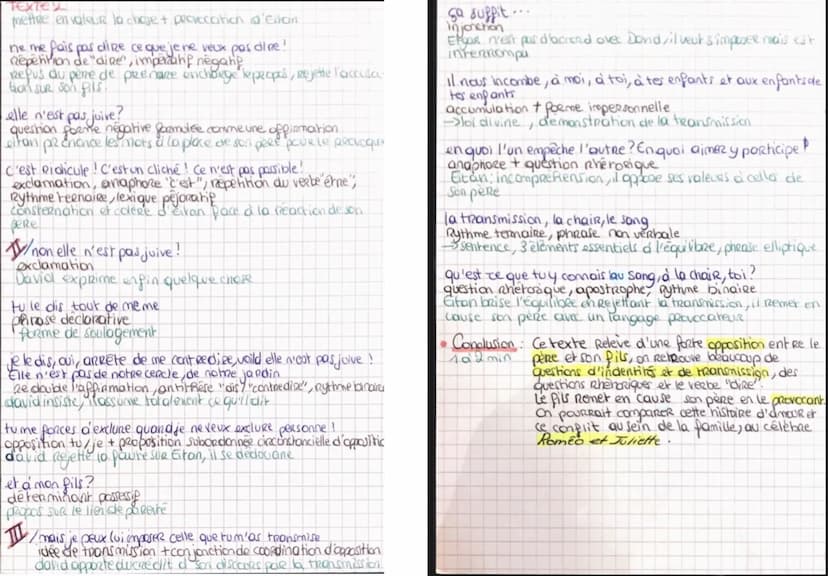 TEXTE 2
mettre en valeur la chose + provocation d'Eitan
ne me fais pas dire ce que je ne veux pas dire !
Répétition de "dire", impératif négatif
Refus du père de prendre en charge le propos, rejette l'accusa-
tion sur son fils.
elle n'est pas juive ?
question forme négative formulée comme une affirmation
eitan prononce les mots à la place de son père pour le provoquer
c'est ridicule ! C'est un cliché ! Ce n'est pas possible !
exclamation, anaphore "c'est", répétition du verbe "être",
Rythme ternaire, lexique péjoratif
consternation et colère d'Eitan face à la réaction de son
père
II/ non elle n'est pas juive !
exclamation
David exprime enfin quelque chose
tu le dis tout de même
phrase déclarative
forme de soulagement
je le dis, oui, arrête de me contredire, voilà elle n'est pas juive !
Elle n'est pas de notre cercle, de notre jardin
Redouble l'affirmation, antithèse "dis" "contredire", rythme binaire
david insiste, il assume totalement ce qu'il dit
tu me forces à exclure quand je ne veux exclure personne !
opposition tu/je + proposition subordonnée circonstancielle d'opposition
david rejette la faute sur Eitan, il se dédouane
et à mon fils ?
déterminant possessif
propos sur le lien de parenté
III/ mais je peux lui imposer celle que tu m'as transmise
idée de transmission + conjonction de coordination d'opposition
david apporte du crédit à son discours par la transmission
ça suffit...
injonction
Eitan n'est pas d'accord avec David, il veut s'imposer mais est
interrompu
il nous incombe, à moi, à toi, à tes enfants et aux enfants de
tes enfants
accumulation + forme impersonnelle
→ loi divine, démonstration de la transmission
en quoi l'un empêche l'autre ? En quoi aimer y participe ?
anaphore + question rhétorique
Eitan : incompréhension, il oppose ses valeurs à celles de
son père
la transmission, la chair, le sang
Rythme ternaire, phrase non verbale
→ sentence, 3 éléments essentiels à l'équilibre, phrase elliptique
qu'est ce que tu y connais au sang, à la chair, toi ?
question rhétorique, apostrophe, rythme binaire
Eitan brise l'équilibre en rejettant la transmission, il remet en
cause son père avec un langage provocateur
• Conclusion : Ce texte relève d'une forte opposition entre le
1 à 2 min père et son fils, on retrouve beaucoup de
questions d'indentités et de transmission, des
questions rhétoriques et le verbe "dire".
Le fils remet en cause son père en le provocant.
On pourrait comparer cette histoire d'amour et
ce conflit au sein de la famille, au célèbre
Roméo et Juliette.